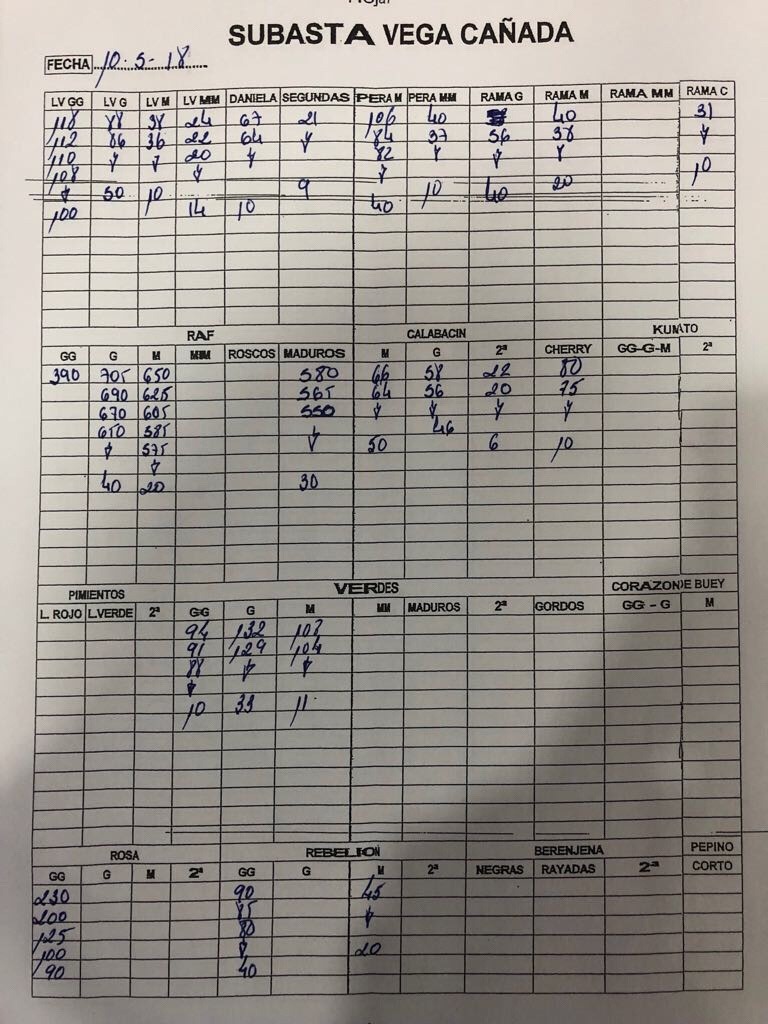 SUBASTA VEGA CAÑADA
FECHA 10-5-18
LV GG LV G LV M LV MM DANIELA SEGUNDAS PERA M PERA MM RAMA G RAMA M RAMA MM RAMA C
118 88 38 24 67 21 106 40 40 31
112 86 36 22 64 84 37 56 38
110 20 82
108 10
50 10 9 10 40 20
100 14 10 40
RAF CALABACIN KUMATO
GG G M MM ROSCOS MADUROS M G 2ª CHERRY GG-G-M 2ª
390 705 650 580 66 58 22 80
690 625 565 64 56 20 75
670 605 550
650 585 46
575 50 6 10
40 20 30
PIMIENTOS VERDES CORAZON DE BUEY
L. ROJO L.VERDE 2ª GG G M MM MADUROS 2ª GORDOS GG - G M
94 132 107
91 129 104
88
10 33 11
ROSA REBELION BERENJENA PEPINO
GG G M 2ª GG G M 2ª NEGRAS RAYADAS 2ª CORTO
230 90 45
200 85
125 80
100 20
90 40